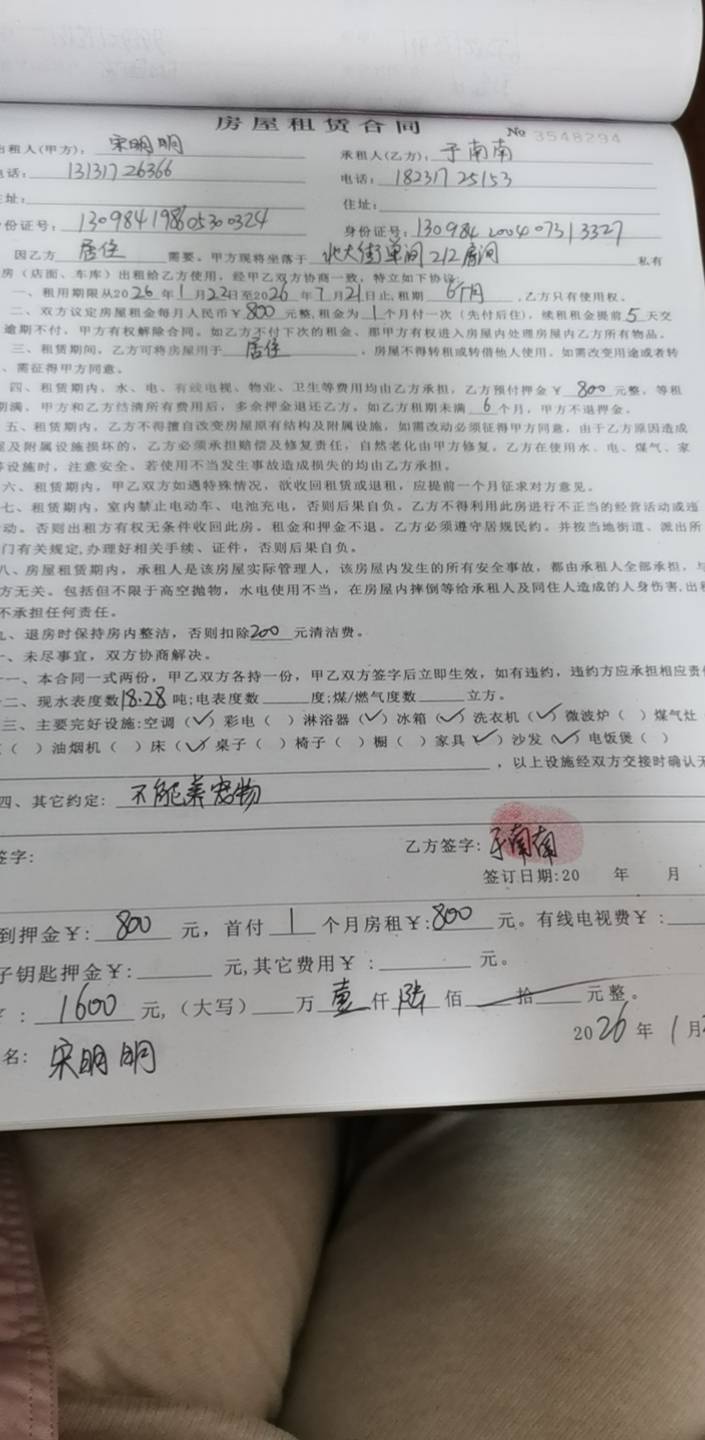 房屋租赁合同 № 3548294
出租人(甲方): 宋明明 承租人(乙方): 于南南
话: 13131726366 电话: 18231725153
址: 住址:
份证号: 130984198605300324 身份证号: 130984200407313327
因乙方 居住 需要。甲方现将坐落于 北大街单间212房间 私有
房（店面、车库）出租给乙方使用，经甲乙双方协商一致，特立如下协议:
一、租用期限从2026年1月22日至2026年7月21日止,租期 6个月 ,乙方只有使用权。
二、双方议定房屋租金每月人民币￥800元整,租金为1个月付一次（先付后住），续租租金提前5天交
逾期不付，甲方有权解除合同。如乙方不付下次的租金、那甲方有权进入房屋内处理房屋内乙方所有物品。
三、租赁期间，乙方可将房屋用于 居住 ，房屋不得转租或转借他人使用。如需改变用途或者转
、需征得甲方同意。
四、租赁期内，水、电、有线电视、物业、卫生等费用均由乙方承担，乙方预付押金￥ 800 元整。等租
期满，甲方和乙方结清所有费用后，多余押金退还乙方，如乙方租期未满 6 个月，甲方不退押金。
五、租赁期内，乙方不得擅自改变房屋原有结构及附属设施，如需改动必须征得甲方同意，由于乙方原因造成
屋及附属设施损坏的，乙方必须承担赔偿及修复责任，自然老化由甲方修复。乙方在使用水、电、煤气、家
等设施时，注意安全。若使用不当发生事故造成损失的均由乙方承担。
六、租赁期内，甲乙双方如遇特殊情况，欲收回租赁或退租，应提前一个月征求对方意见。
七、租赁期内，室内禁止电动车、电池充电，否则后果自负。乙方不得利用此房进行不正当的经营活动或违
动。否则出租方有权无条件收回此房。租金和押金不退。乙方必须遵守居规民约。并按当地街道、派出所
门有关规定,办理好相关手续、证件，否则后果自负。
八、房屋租赁期内，承租人是该房屋实际管理人，该房屋内发生的所有安全事故，都由承租人全部承担，与
方无关。包括但不限于高空抛物，水电使用不当，在房屋内摔倒等给承租人及同住人造成的人身伤害,出租
不承担任何责任。
九、退房时保持房内整洁，否则扣除200元清洁费。
十、未尽事宜，双方协商解决。
十一、本合同一式两份，甲乙双方各持一份，甲乙双方签字后立即生效，如有违约，违约方应承担相应责任
十二、现水表度数18.28吨;电表度数 度;煤/燃气度数 立方。
三、主要完好设施:空调（✓）彩电（ ）淋浴器（✓）冰箱（✓）洗衣机（✓）微波炉（ ）煤气灶
（ ）油烟机（ ）床（✓）桌子（ ）椅子（ ）橱（ ）家具（✓）沙发（✓）电饭煲（ ）
，以上设施经双方交接时确认无
四、其它约定: 不能养宠物
签字: 乙方签字: 于南南
签订日期:20 年 月
到押金￥: 800 元，首付 1 个月房租￥:800 元。有线电视费￥:
子钥匙押金￥: 元,其它费用￥: 元。
￥: 1600 元,（大写） 万 壹 仟 陆 佰 拾 元整。
2026年1月
名: 宋明明